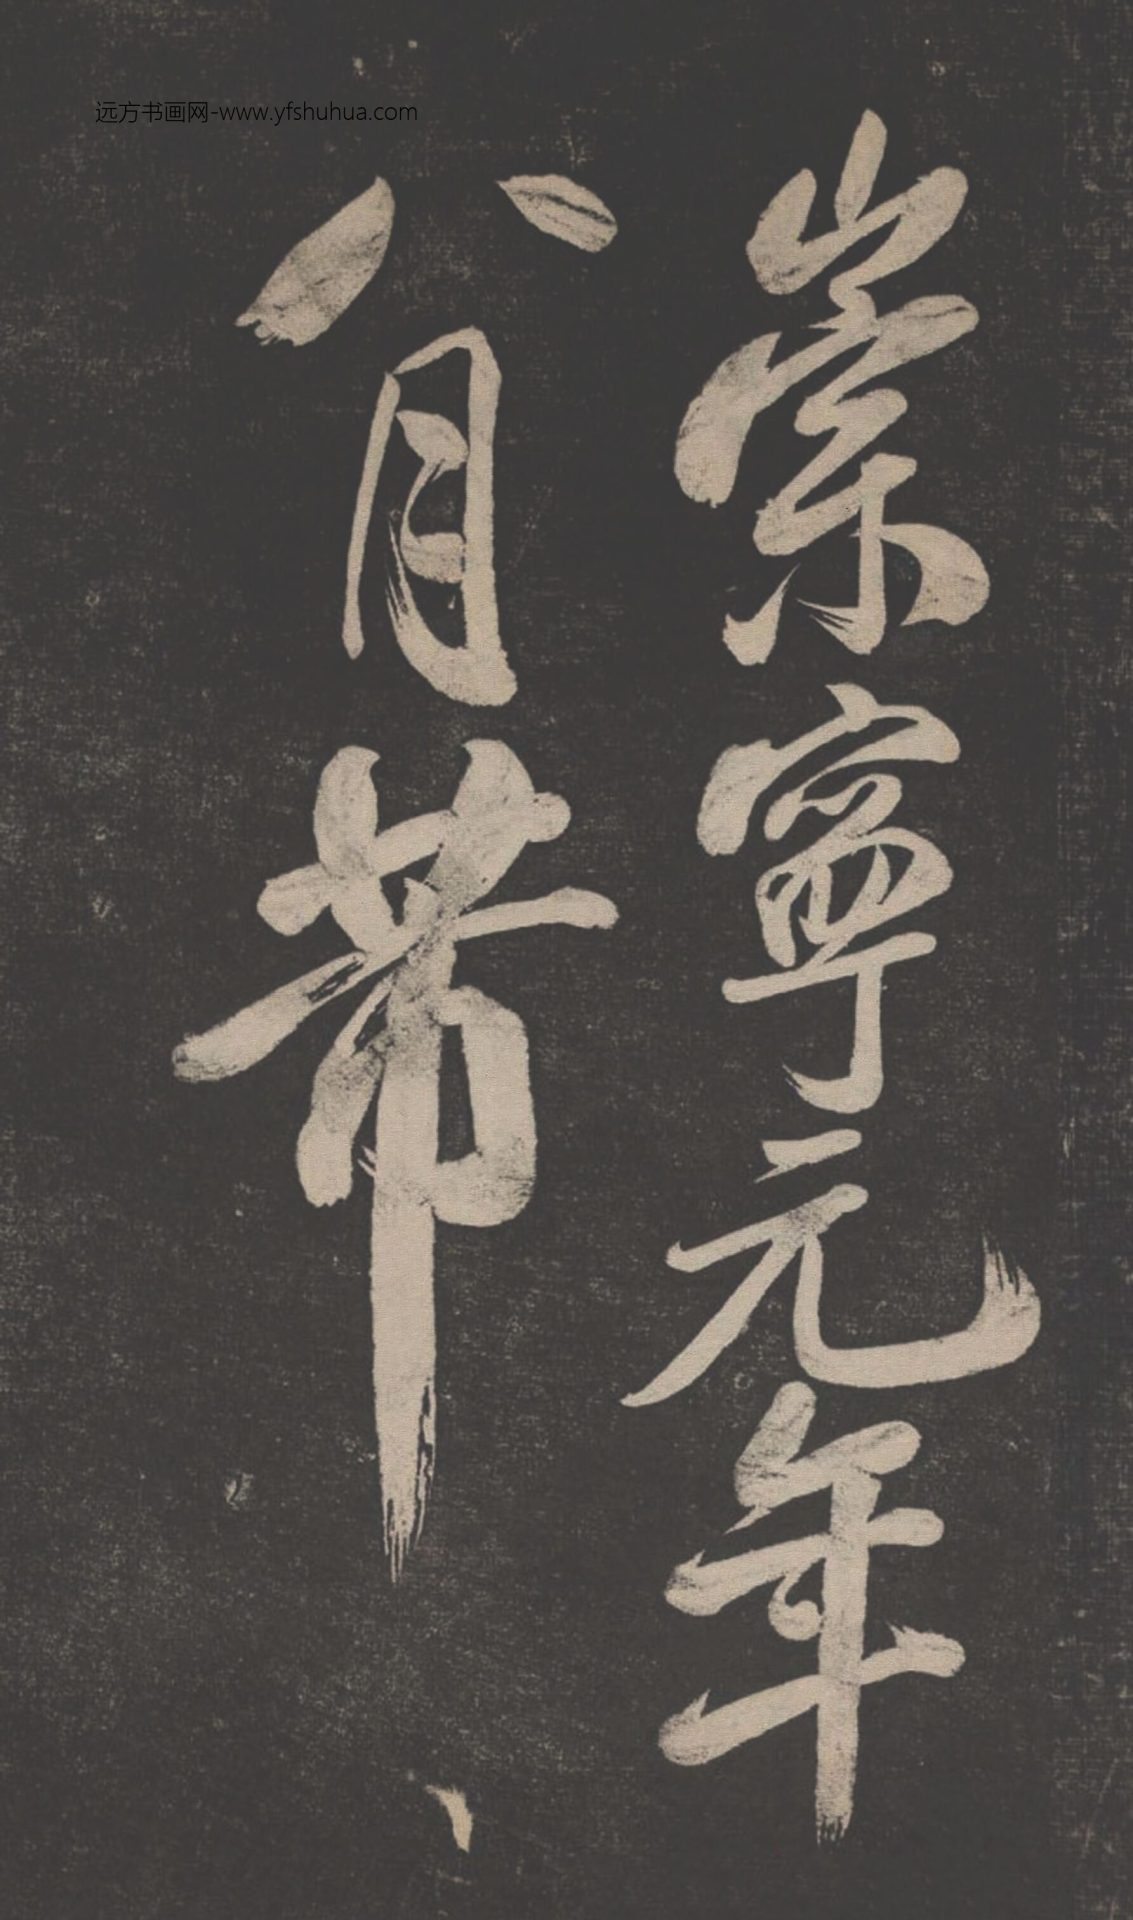 远方书画网-www.yfshuhua.com
崇寧元年
八月芾